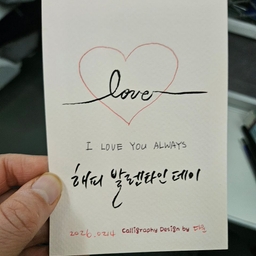 love
I LOVE YOU ALWAYS
해피 발렌타인 데이
2026. 02.14 Calligraphy Design by